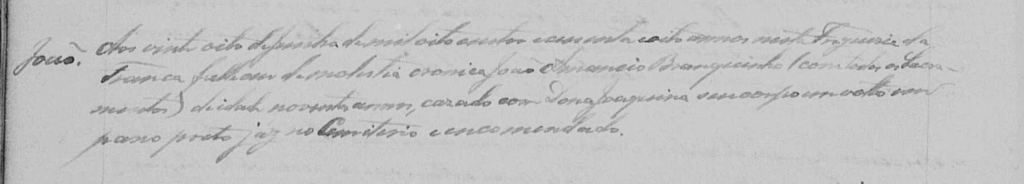 João. Aos vinte oito de Junho de mil oito centos e cecenta e oito annos nesta Freguezia da
Franca falleceu de molestia cronica João Amancio Branquinho (com todos os Sacra-
mentos) de idade noventa annos, cazado com Dona Joaquina seu corpo envolto em
pano preto jaz no Cemiterio e encomendado.